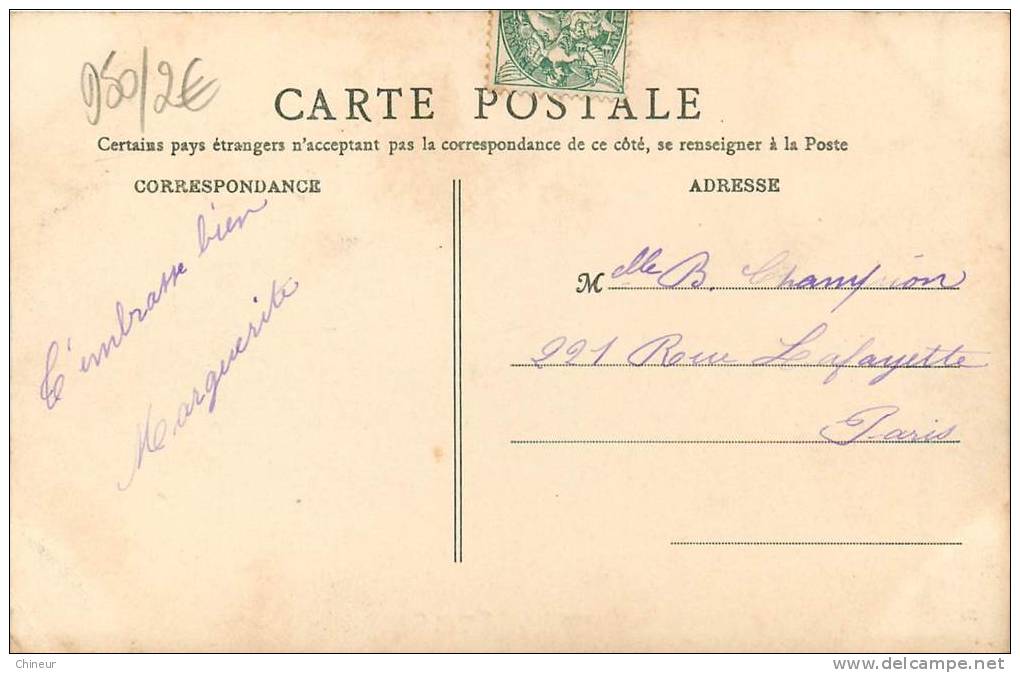 950/2€
CARTE POSTALE
Certains pays étrangers n'acceptant pas la correspondance de ce côté, se renseigner à la Poste
CORRESPONDANCE
T'embrasse bien
Marguerite
ADRESSE
Mlle B. Champion
221 Rue Lafayette
Paris
Chineur
www.delcampe.net